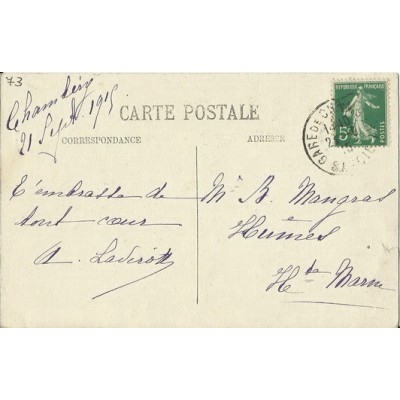 73
Chambéry
21 Sept. 1915
CARTE POSTALE
CORRESPONDANCE
ADRESSE
REPUBLIQUE FRANÇAISE
5c
POSTES
GARE DE
T'embrasse de
tout cœur
A.
Mr B. Mangras
Humes
Hte Marne